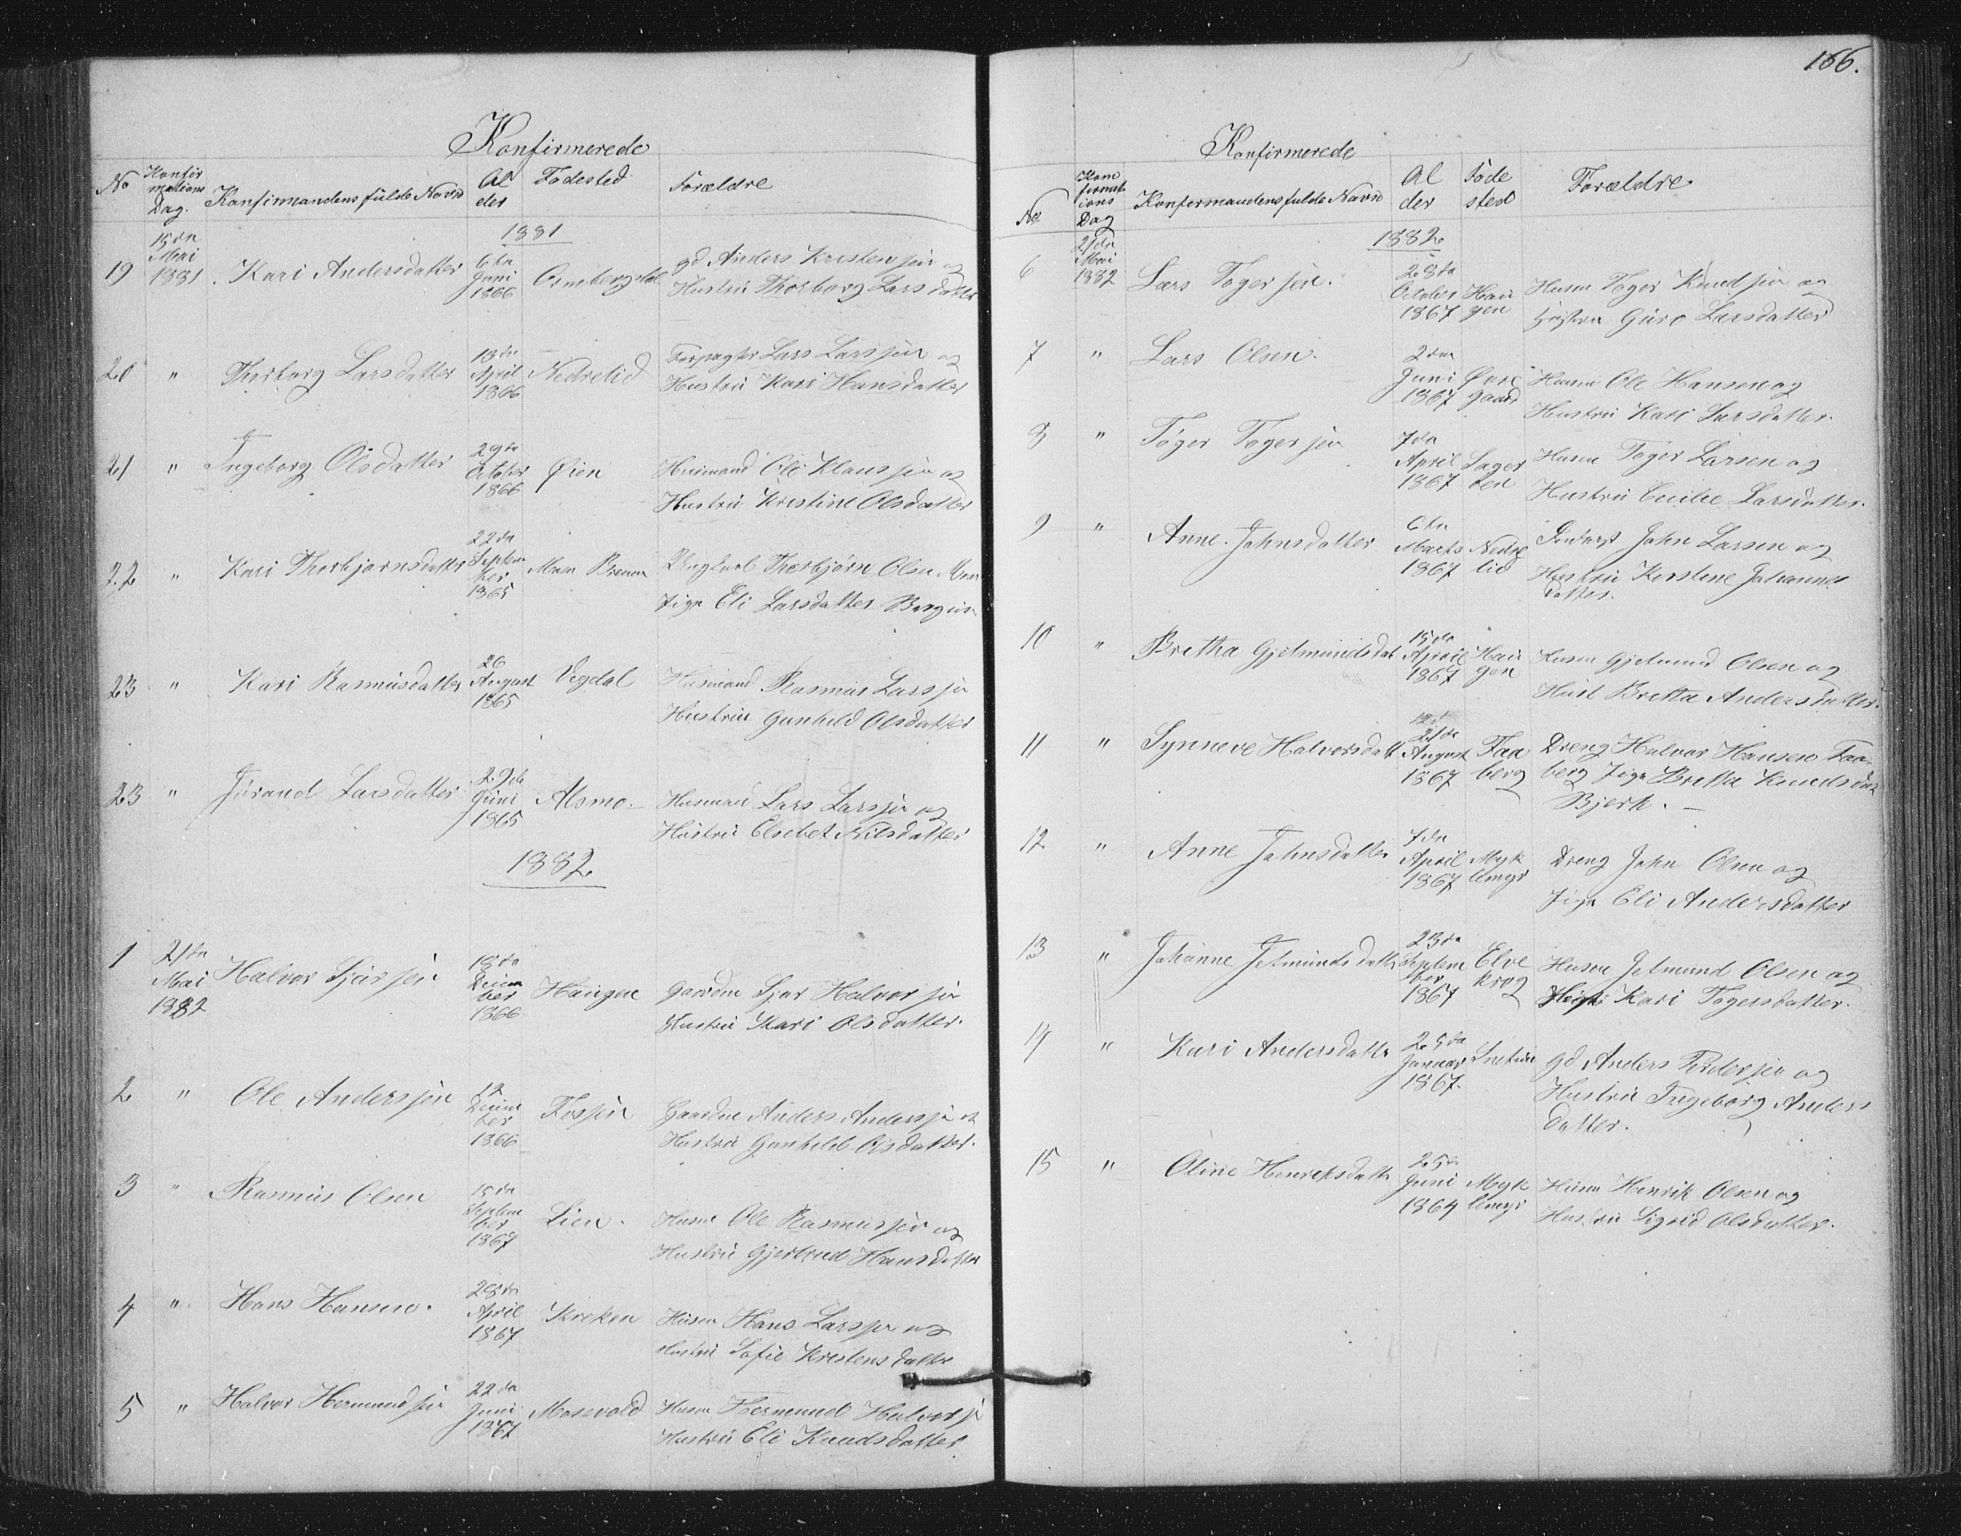 166.
Konfirmerede
No
Konfir
mations
Dag.
Konfirmandens fulde Navn
Al
der
Fødested
Forældre
1881
19
15de
Mai
1881
Kari Andersdatter
6te
Juni
1866
gd Anders Kristensen og
Hustru Thorborg Larsdatter
20
"
Thorborg Larsdatter
13de
April
1866
Nedrelid
Forpagter Lars Larssen og
Hustru Kari Hansdatter
21
"
Ingeborg Olsdatter
29de
October
1866
Øien
Husmand Ole Klaussen og
Hustru Kristine Olsdatter
22
"
Kari Thorbjørnsdatter
22de
Septem
ber
1865
Moen Bremn
Ungkarl Thorbjørn Olsen Moen
Pige Eli Larsdatter
23
"
Kari Rasmusdatter
26
August
1865
Vegdal
Husmand Rasmus Larssen
Hustrue Gunhild Olsdatter
23
"
Jørand Larsdatter
29de
Juni
1865
Alsmo
Husmand Lars Larssen og
Hustru Elsebet Nilsdatter
1882
1
21de
Mai
1882
Halvor Sjursen
18de
Decem
ber
1866
Haugen
Gaardm Sjur Halvorsen
Hustru Kari Olsdatter.
2
"
Ole Anderssen
12
Decem
ber
1866
Fossen
Gaardm Anders Anderssen og
Hustru Gunhild Olsdatter.
3
"
Rasmus Olsen
15de
Septem
ber
1867
Lien.
Husm Ole Rasmussen og
Hustru Gjertrud Hansdatter
4
"
Hans Hansen.
28de
April
1867
Kroken
Husm Hans Larssen og
Hustru Sofie Kristensdatter
5
"
Halvor Hermundsen
22de
Juni
1867
Mosevold
Husm Hermund Halvorsen
Hustru Eli Knudsdatter
Konfirmerede
No
Kon
firmat
ions
Dag
Konfirmandens fulde Navn
Al
der
Føde
sted
Forældre
1882
6
21de
Mai
1882
Lars Togersen.
28de
October
1867
Hau
gen
Husm Toger Knudsen og
Hustru Guro Larsdatter
7
"
Lars Olsen.
2den
Juni
1867
Øvre
gaard
Husm Ole Hansen og
Hustru Kari Larsdatter.
8
"
Toger Togersen
7de
April
1867
Husm Toger Larsen og
Hustru Cecilie Larsdatter.
9
"
Anne Johnsdatter
6te
Marts
1867
Nedre
lid
John Larsen og
Hustru Kerstene Johannes
datter.
10
"
Bretha Gjetmundsdat
15de
April
1867
Hau
gen
Husm Gjetmund Olsen og
Hust Bretta Andersdatter.
11
"
Synneve Halvorsdatt
21de
August
1867
Faa
berg
Dreng Halvor Hansen Faa-
berg Pige Bretta Knudsdat
Bjerk.
12
"
Anne Johnsdatter
7de
April
1867
Myk
lemyr
Dreng John Olsen og
Pige Eli Andersdatter
13
"
Johanne Jetmundsdatt
23de
Septem
ber
1867
Elve
krog
Husm Jetmund Olsen og
Kari Togersdatter.
14
"
Kari Andersdatter
25de
Januar
1867.
gd Anders Pedersen og
Hustru Ingeborg Anders
datter.
15
"
Oline Henriksdatt
25de
Juni
1864
Myk
lemyr
Husm Henrik Olsen og
Hustru Sigrid Olsdatter.